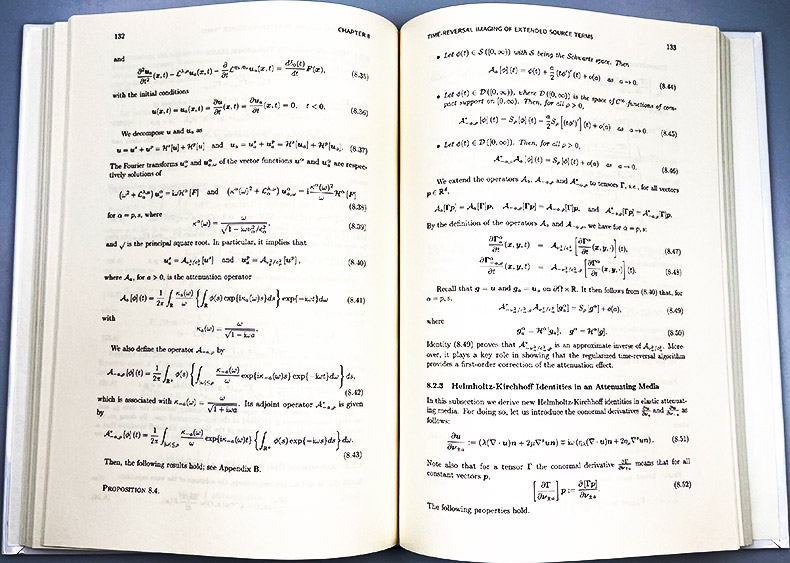 132 CHAPTER 8
and
∂²uₐ/∂t² (x, t) − 𝓛^{λ,μ}uₐ(x, t) − ∂/∂t 𝓛^{ηλ,ημ}uₐ(x, t) = dδ₀(t)/dt F(x), (8.35)
with the initial conditions
u(x, t) = uₐ(x, t) = ∂u/∂t (x, t) = ∂uₐ/∂t (x, t) = 0, t < 0. (8.36)
We decompose u and uₐ as
u = uˢ + uᵖ = 𝓗ˢ[u] + 𝓗ᵖ[u] and uₐ = uₐˢ + uₐᵖ = 𝓗ˢ[uₐ] + 𝓗ᵖ[uₐ]. (8.37)
The Fourier transforms and of the vector functions and are respec-
tively solutions of
(8.38)
for α = p, s, where
κ^α(ω) = ω/√(1 − iων²_α/c²_α), (8.39)
and √ is the principal square root. In particular, it implies that
(8.40)
where 𝓐ₐ, for a > 0, is the attenuation operator
𝓐ₐ[ϕ](t) = 1/2π ∫_ℝ κₐ(ω)/ω { ∫_ℝ ϕ(s) exp{iκₐ(ω)s} ds } exp{−iωt} dω (8.41)
with
κₐ(ω) = ω/√(1 − iωa).
We also define the operator 𝓐₋ₐ,ρ by
𝓐₋ₐ,ρ[ϕ](t) = 1/2π ∫_ℝ⁺ ϕ(s) { ∫_{|ω|≤ρ} κ₋ₐ(ω)/ω exp{iκ₋ₐ(ω)s} exp{−iωt} dω } ds,
(8.42)
which is associated with κ₋ₐ(ω) = ω/√(1 + iωa). Its adjoint operator 𝓐*₋ₐ,ρ is given
by
𝓐*₋ₐ,ρ[ϕ](t) = 1/2π ∫_{|ω|≤ρ} κ₋ₐ(ω)/ω exp{iκ₋ₐ(ω)t} { ∫_ℝ⁺ ϕ(s) exp{−iωs} ds } dω.
(8.43)
Then, the following results hold; see Appendix B.
PROPOSITION 8.4.
TIME-REVERSAL IMAGING OF EXTENDED SOURCE TERMS 133
• Let ϕ(t) ∈ 𝓢([0, ∞)) with 𝓢 being the Schwartz space. Then
𝓐ₐ[ϕ](t) = ϕ(t) + a/2 (tϕ′)′(t) + o(a) as a → 0. (8.44)
• Let ϕ(t) ∈ 𝓓([0, ∞)), where 𝓓([0, ∞)) is the space of C^∞-functions of com-
pact support on [0, ∞). Then, for all ρ > 0,
𝓐*₋ₐ,ρ[ϕ](t) = S_ρ[ϕ](t) − a/2 S_ρ[(tϕ′)′](t) + o(a) as a → 0. (8.45)
• Let ϕ(t) ∈ 𝓓([0, ∞)). Then, for all ρ > 0,
𝓐*₋ₐ,ρ𝓐ₐ[ϕ](t) = S_ρ[ϕ](t) + o(a) as a → 0. (8.46)
We extend the operators 𝓐ₐ, 𝓐₋ₐ,ρ and 𝓐*₋ₐ,ρ to tensors Γ, i.e., for all vectors
p ∈ ℝᵈ,
𝓐ₐ[Γp] = 𝓐ₐ[Γ]p, 𝓐₋ₐ,ρ[Γp] = 𝓐₋ₐ,ρ[Γ]p, and 𝓐*₋ₐ,ρ[Γp] = 𝓐*₋ₐ,ρ[Γ]p.
By the definition of the operators 𝓐ₐ and 𝓐₋ₐ,ρ, we have for α = p, s:
(8.47)
(8.48)
Recall that g = u and gₐ = uₐ on ∂Ω × ℝ. It then follows from (8.40) that, for
α = p, s,
(8.49)
where
gₐ^α = 𝓗^α[gₐ], g^α = 𝓗^α[g]. (8.50)
Identity (8.49) proves that is an approximate inverse of More-
over, it plays a key role in showing that the regularized time-reversal algorithm
provides a first-order correction of the attenuation effect.
8.2.3 Helmholtz-Kirchhoff Identities in an Attenuating Media
In this subsection we derive new Helmholtz-Kirchhoff identities in elastic attenuat-
ing media. For doing so, let us introduce the conormal derivatives and as
follows:
∂u/∂ν±ₐ := (λ(∇ · u)n + 2μ∇ˢun) ∓ iω(η_λ(∇ · u)n + 2η_μ∇ˢun). (8.51)
Note also that for a tensor Γ the conormal derivative ∂Γ/∂ν±ₐ means that for all
constant vectors p,
[∂Γ/∂ν±ₐ] p := ∂[Γp]/∂ν±ₐ. (8.52)
The following properties hold.